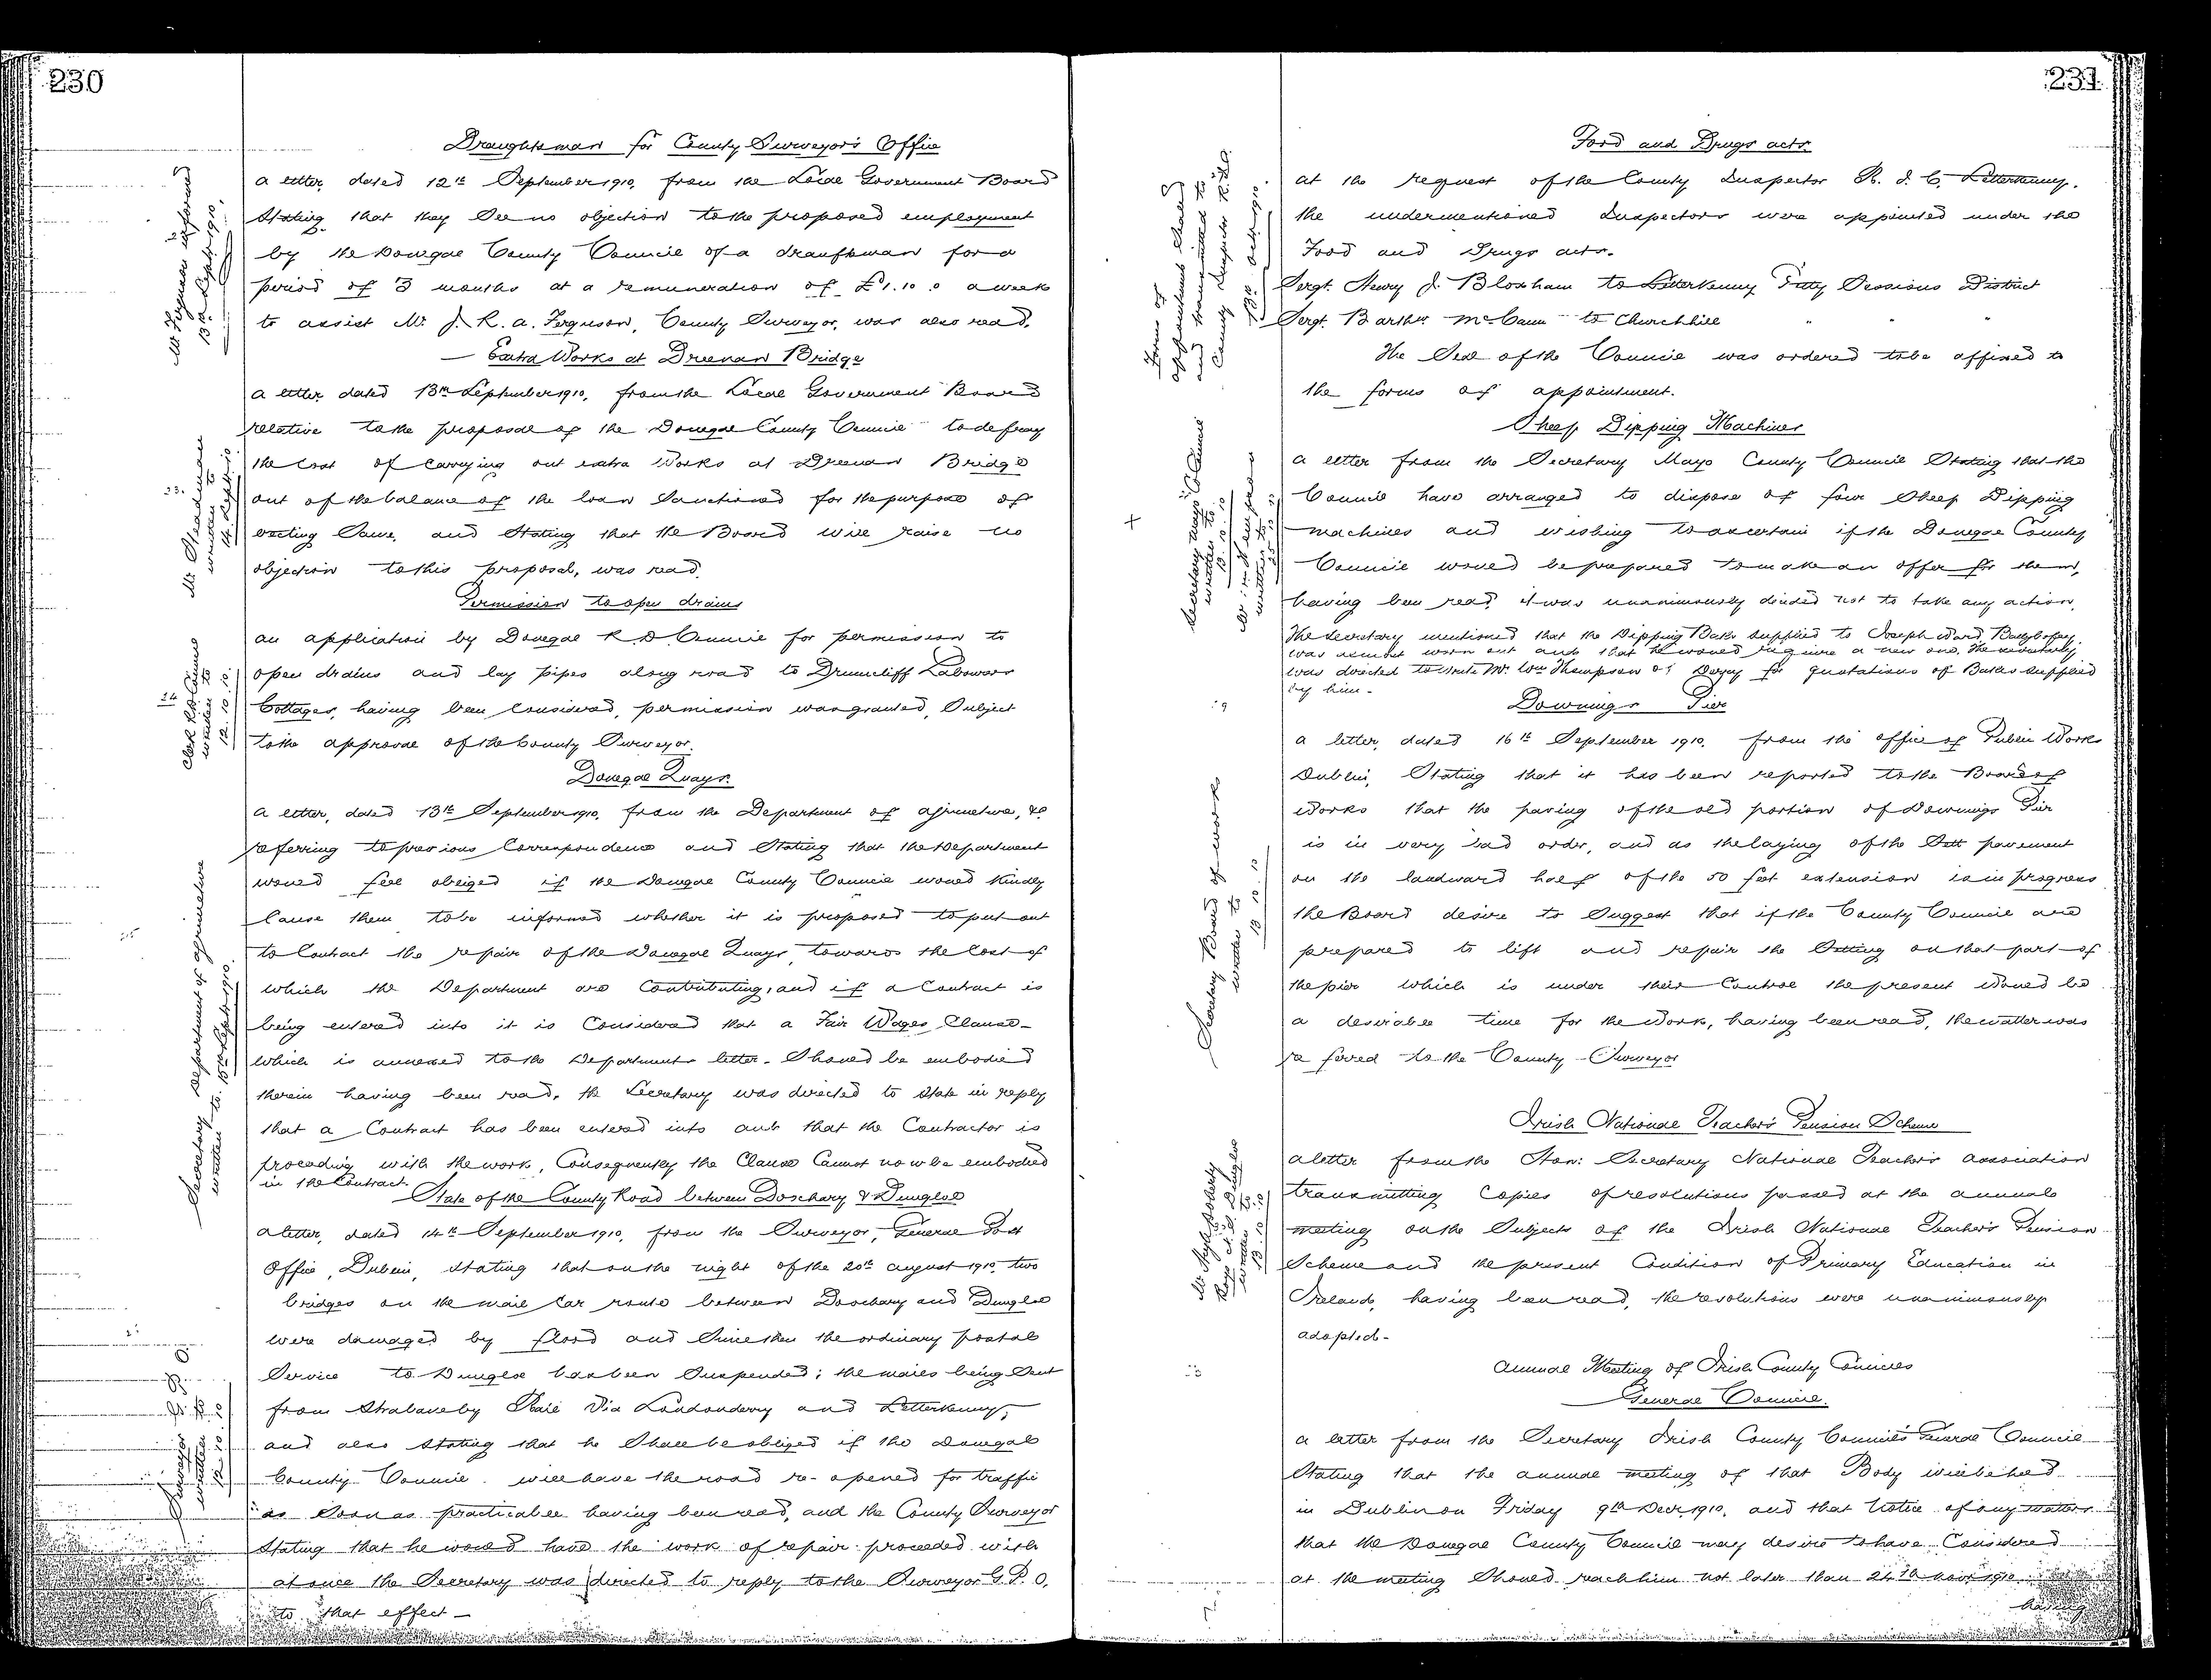 230
Draughtsman for County Surveyor's Office
A letter, dated 12th September 1910, from the Local Government Board
stating that they see no objection to the proposed employment
by the Donegal County Council of a draughtsman for a
period of 3 months at a remuneration of £1.10.0 a week
to assist Mr. J. R. A. Ferguson, County Surveyor, was also read.
Mr Ferguson informed
13th Septr 1910.
Extra Works at Dreenan Bridge
A letter dated 13th September 1910, from the Local Government Board
relative to the proposal of the Donegal County Council to defray
the cost of carrying out extra works at Dreenan Bridge
out of the balance of the loan sanctioned for the purpose of
erecting same, and stating that the Board will raise no
objection to this proposal, was read.
23.
written to
14 Sept 10
Permission to open drains
An application by Donegal R D Council for permission to
open drains and lay pipes along road to Drumcliff Labourers
Cottages, having been considered, permission was granted, subject
to the approval of the County Surveyor.
24
Clerk R.D. Council
written to
12.10.10.
Donegal Quays.
A letter, dated 13th September 1910, from the Department of Agriculture, &c
referring to previous correspondence and stating that the Department
would feel obliged if the Donegal County Council would kindly
cause them to be informed whether it is proposed to put out
to contract the repair of the Donegal Quays, towards the cost of
which the Department are contributing, and if a contract is
being entered into it is considered that a Fair Wages Clause -
which is annexed to the Departments letter - should be embodied
therein having been read, the Secretary was directed to state in reply
that a Contract has been entered into and that the Contractor is
proceeding with the work, Consequently the Clause cannot now be embodied
in the Contract.
25
Secretary Department of Agriculture
written to. 15th Sept 1910.
State of the County Road between Doochary & Dungloe
A letter, dated 14th September 1910, from the Surveyor, General Post
Office, Dublin, stating that on the night of the 20th August 1910, two
bridges on the mail car route between Doochary and Dungloe
were damaged by flood and since then the ordinary postal
service to Dungloe has been suspended; the mails being sent
from Strabane by Rail via Londonderry and Letterkenny,
and also stating that he shall be obliged if the Donegal
County Council will have the road re-opened for traffic
as soon as practicable having been read, and the County Surveyor
stating that he would have the work of repair proceeded with
at once the Secretary was directed to reply to the Surveyor G.P.O.
to that effect -
Surveyor G.P.O
written to
231
Food and Drugs Acts
At the request of the County Inspector R. I. C. Letterkenny,
the undermentioned Inspectors were appointed under the
Food and Drugs Acts.
Sergt. Henry J. Bloxham to Letterkenny Petty Sessions District
Sergt. Barthw McCann to Churchhill " " "
The Seal of the Council was ordered to be affixed to
the forms of appointment.
Forms of
appointment sealed
and transmitted to
County Inspector R.I.C.
13th Octr 1910.
Sheep Dipping Machines
A letter from the Secretary Mayo County Council stating that the
Council have arranged to dispose of four Sheep Dipping
machines and wishing to ascertain if the Donegal County
Council would be prepared to make an offer for them,
having been read, it was unanimously decided not to take any action.
The Secretary mentioned that the Dipping Bath supplied to Joseph Ward, Ballybofey,
was almost worn out and that he would require a new one. The Secretary
was directed to write Mr. Wm Thompson of Derry for quotations of Baths supplied
by him -
Secretary Mayo Co Council
written to
Downings Pier
A letter, dated 16th September 1910, from the Office of Public Works
Dublin, stating that it has been reported to the Board of
Works that the paving of the old portion of Downings Pier
is in very bad order, and as the laying of the sett pavement
on the landward half of the 50 feet extension is in progress
the Board desire to suggest that if the County Council are
prepared to lift and repair the setting on that part of
the pier which is under their control the present would be
a desirable time for the work, having been read, the matter was
referred to the County Surveyor
Secretary Board of Works
written to
13 10 10
Irish National Teachers Pension Scheme
A letter from the Hon: Secretary National Teacher's Association
transmitting copies of resolutions passed at the annual
meeting on the subjects of the Irish National Teacher's Pension
Scheme and the present condition of Primary Education in
Ireland, having been read, the resolutions were unanimously
adopted -
Annual Meeting of Irish County Councils
General Council.
A letter from the Secretary Irish County Councils General Council
stating that the annual meeting of that Body will be held
in Dublin on Friday 9th Decr 1910, and that notice of any matters
that the Donegal County Council may desire to have considered
at the meeting should reach him not later than 24th Novr 1910
having